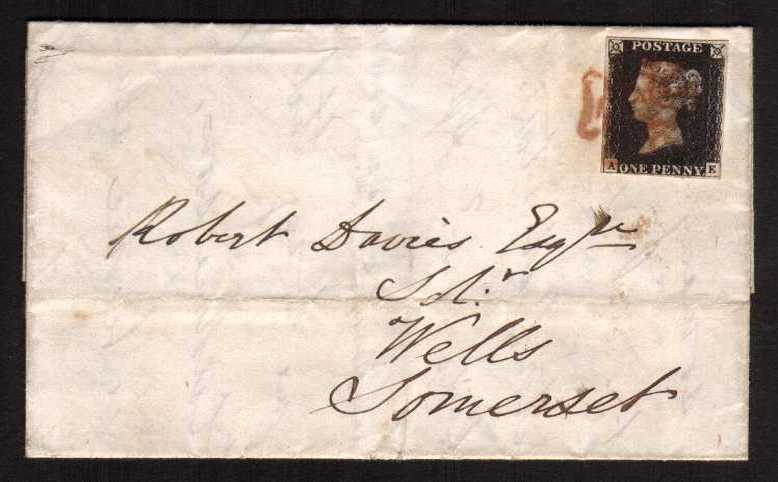 POSTAGE
A E
ONE PENNY
Robert Davies Esqre
Solr
Wells
Somerset